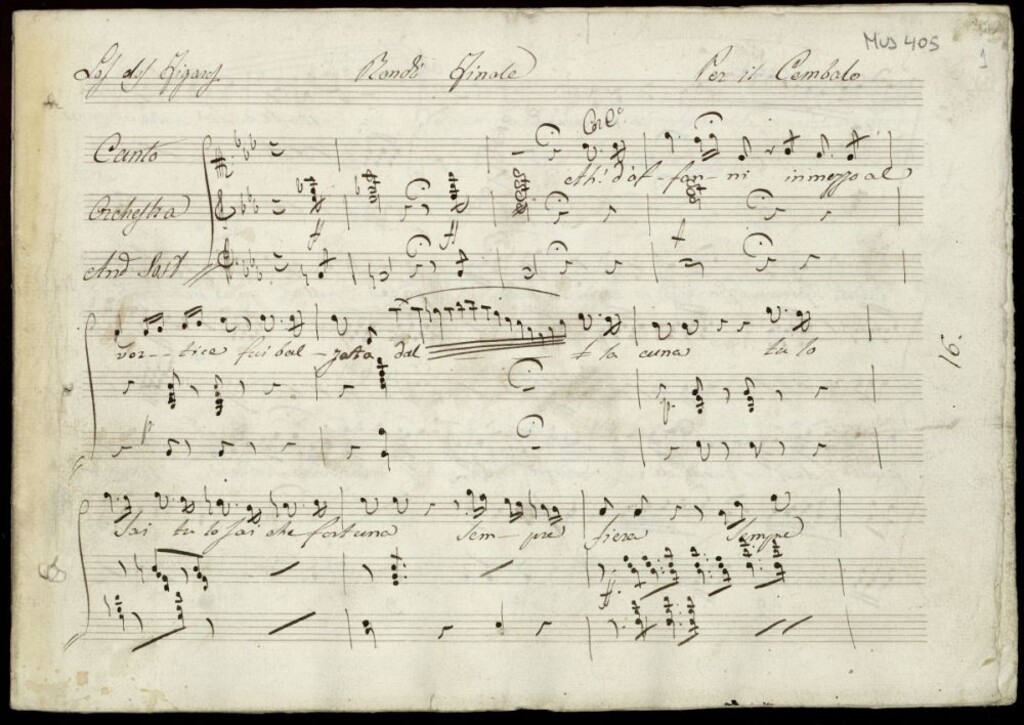 Mus 405
1
Los dos Figaros Rondò Finale Per il Cembalo
Corl.º
Canto
eth.' d'af-fan-ni in mezzo al
Orchestra
ff ff f
And Sost
vor--tice fui bal-zata dal- la cuna tu lo
p p.
16.
sai tu lo sai che fortuna sem-pre fiera sempre
ff.